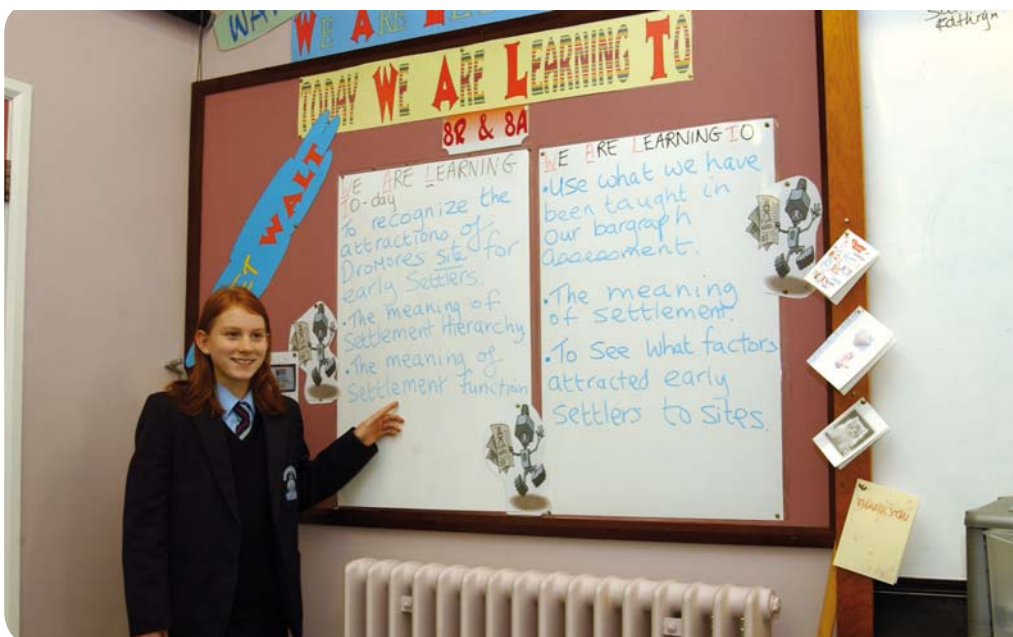 WE ARE LE
TODAY WE ARE LEARNING TO
8R & 8A
WALT
WE ARE LEARNING
TO-day
To recognize the
attractions of
DroMores site for
early Settlers.
•The meaning of
Settlement Hierarchy
•The meaning of
Settlement function
WE ARE LEARNING TO
•Use what we have
been taught in
our bargraph
assessment.
•The meaning
of settlement.
•To See what factors
attracted early
settlers to sites.
Kathryn